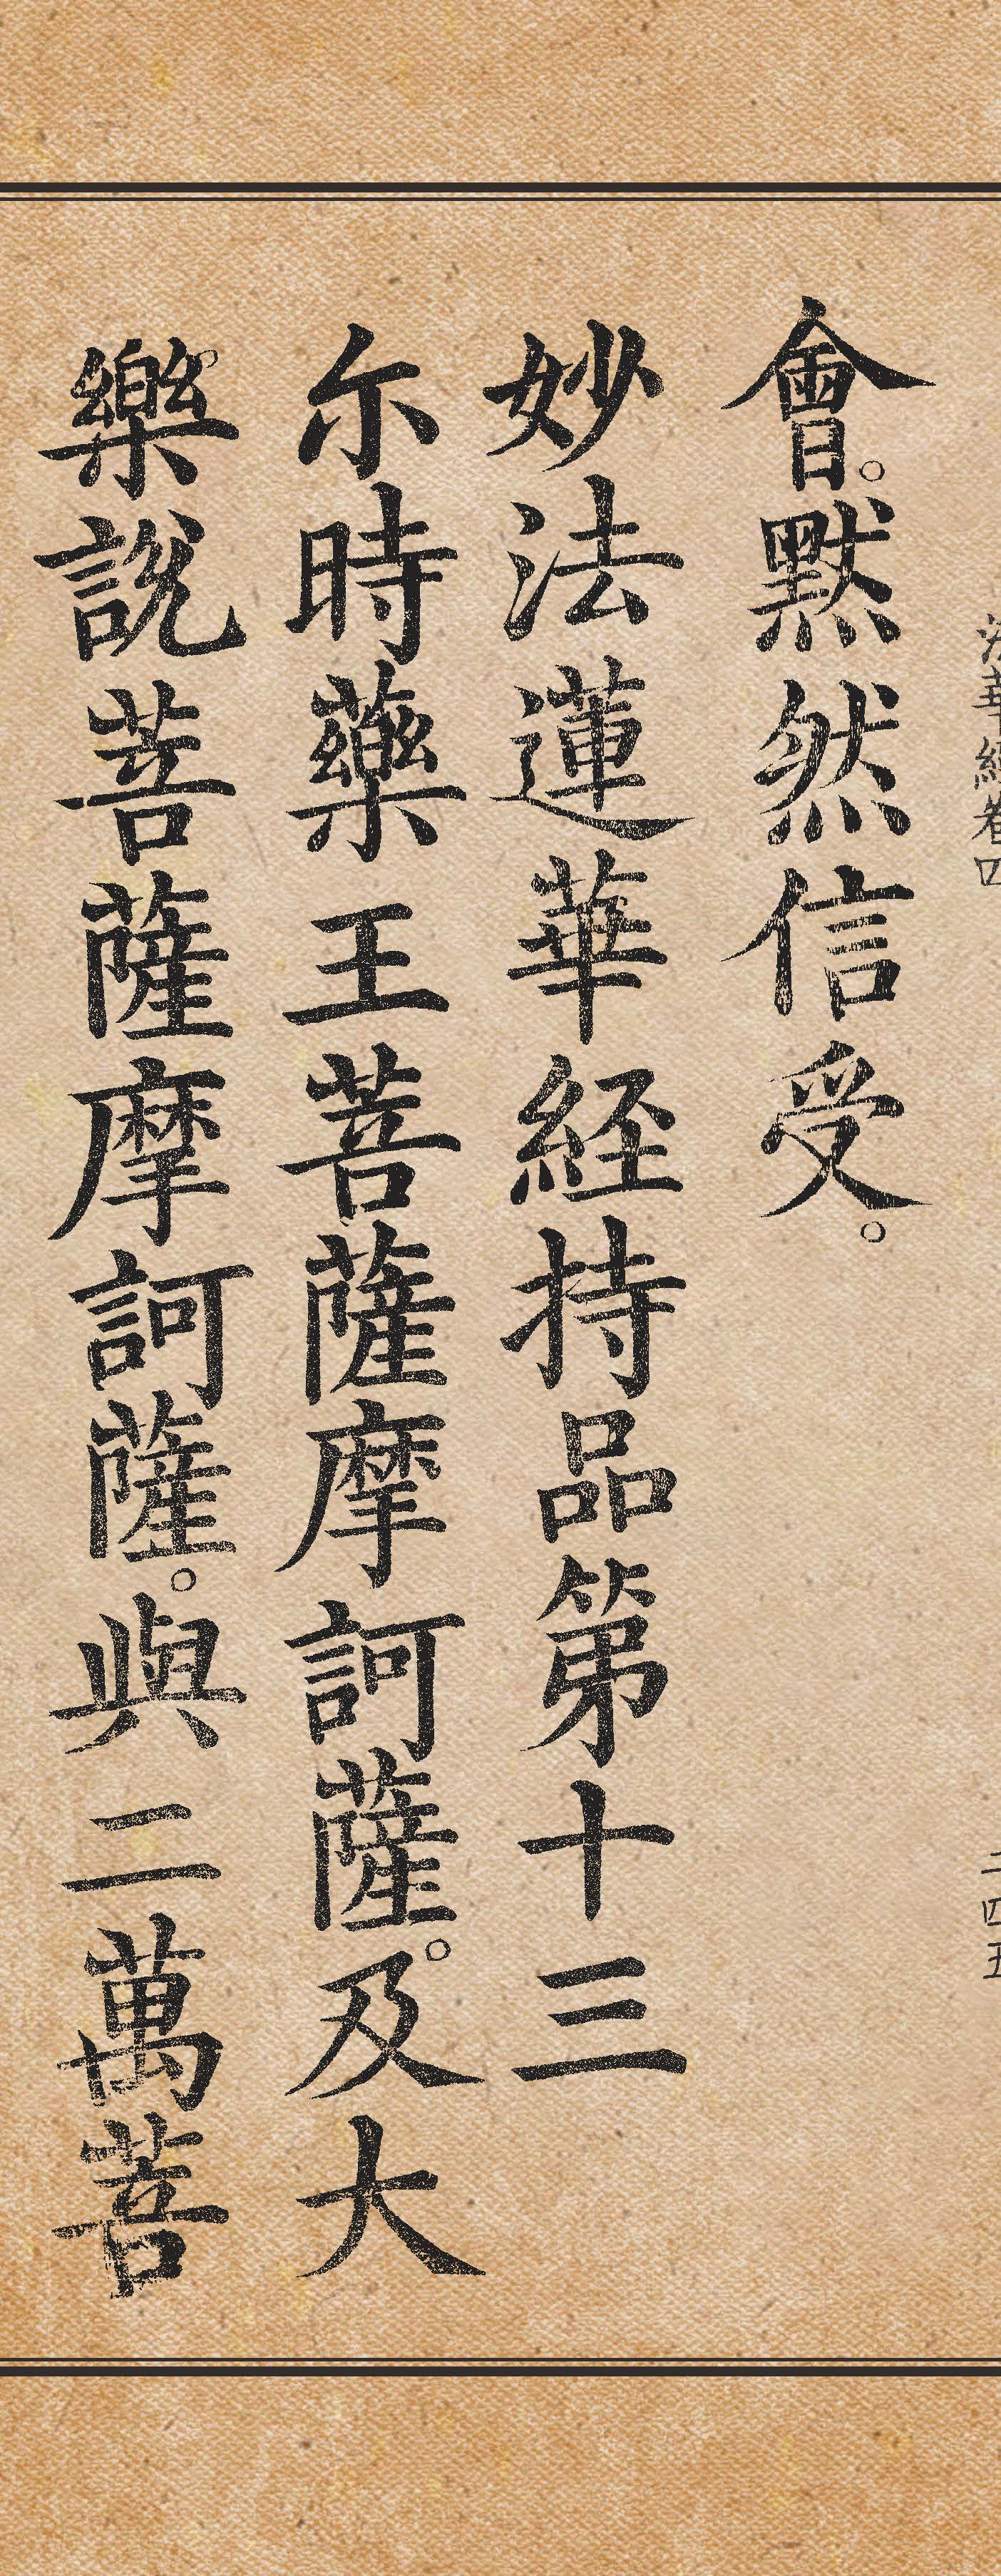 法華經卷四
二四五
會。默然信受。
妙法蓮華経持品第十三
尒時藥王菩薩摩訶薩。及大
樂說菩薩摩訶薩。與二萬菩